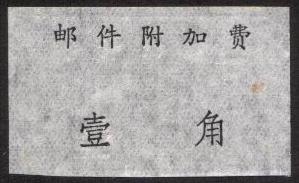 邮件附加费
壹角